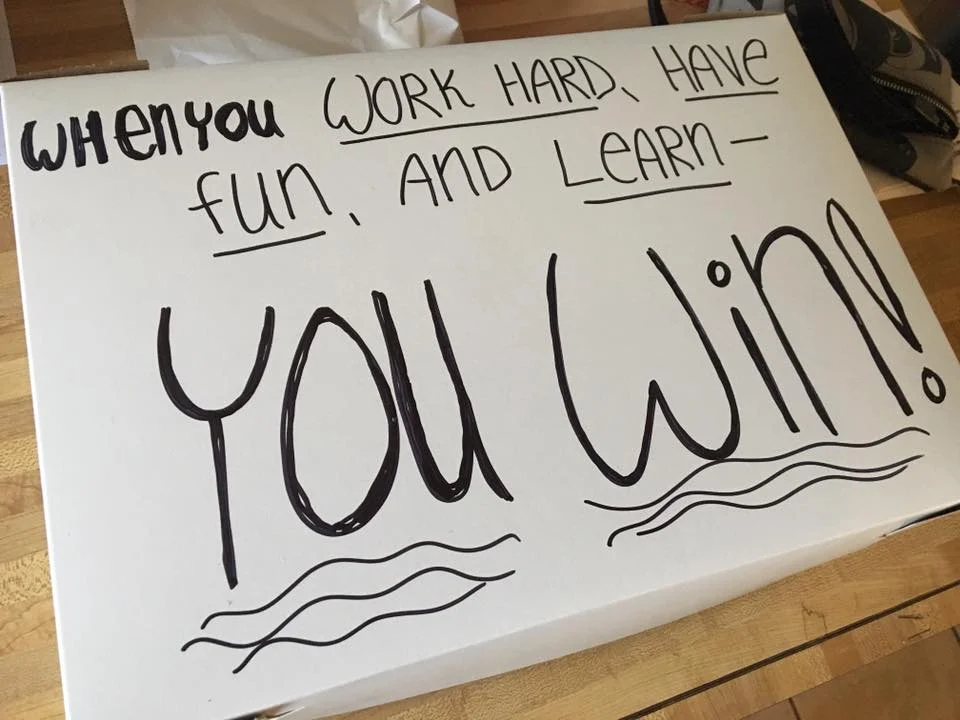 WHEN YOU WORK HARD, HAVE
fun, AND LEARN—
YOU Win!